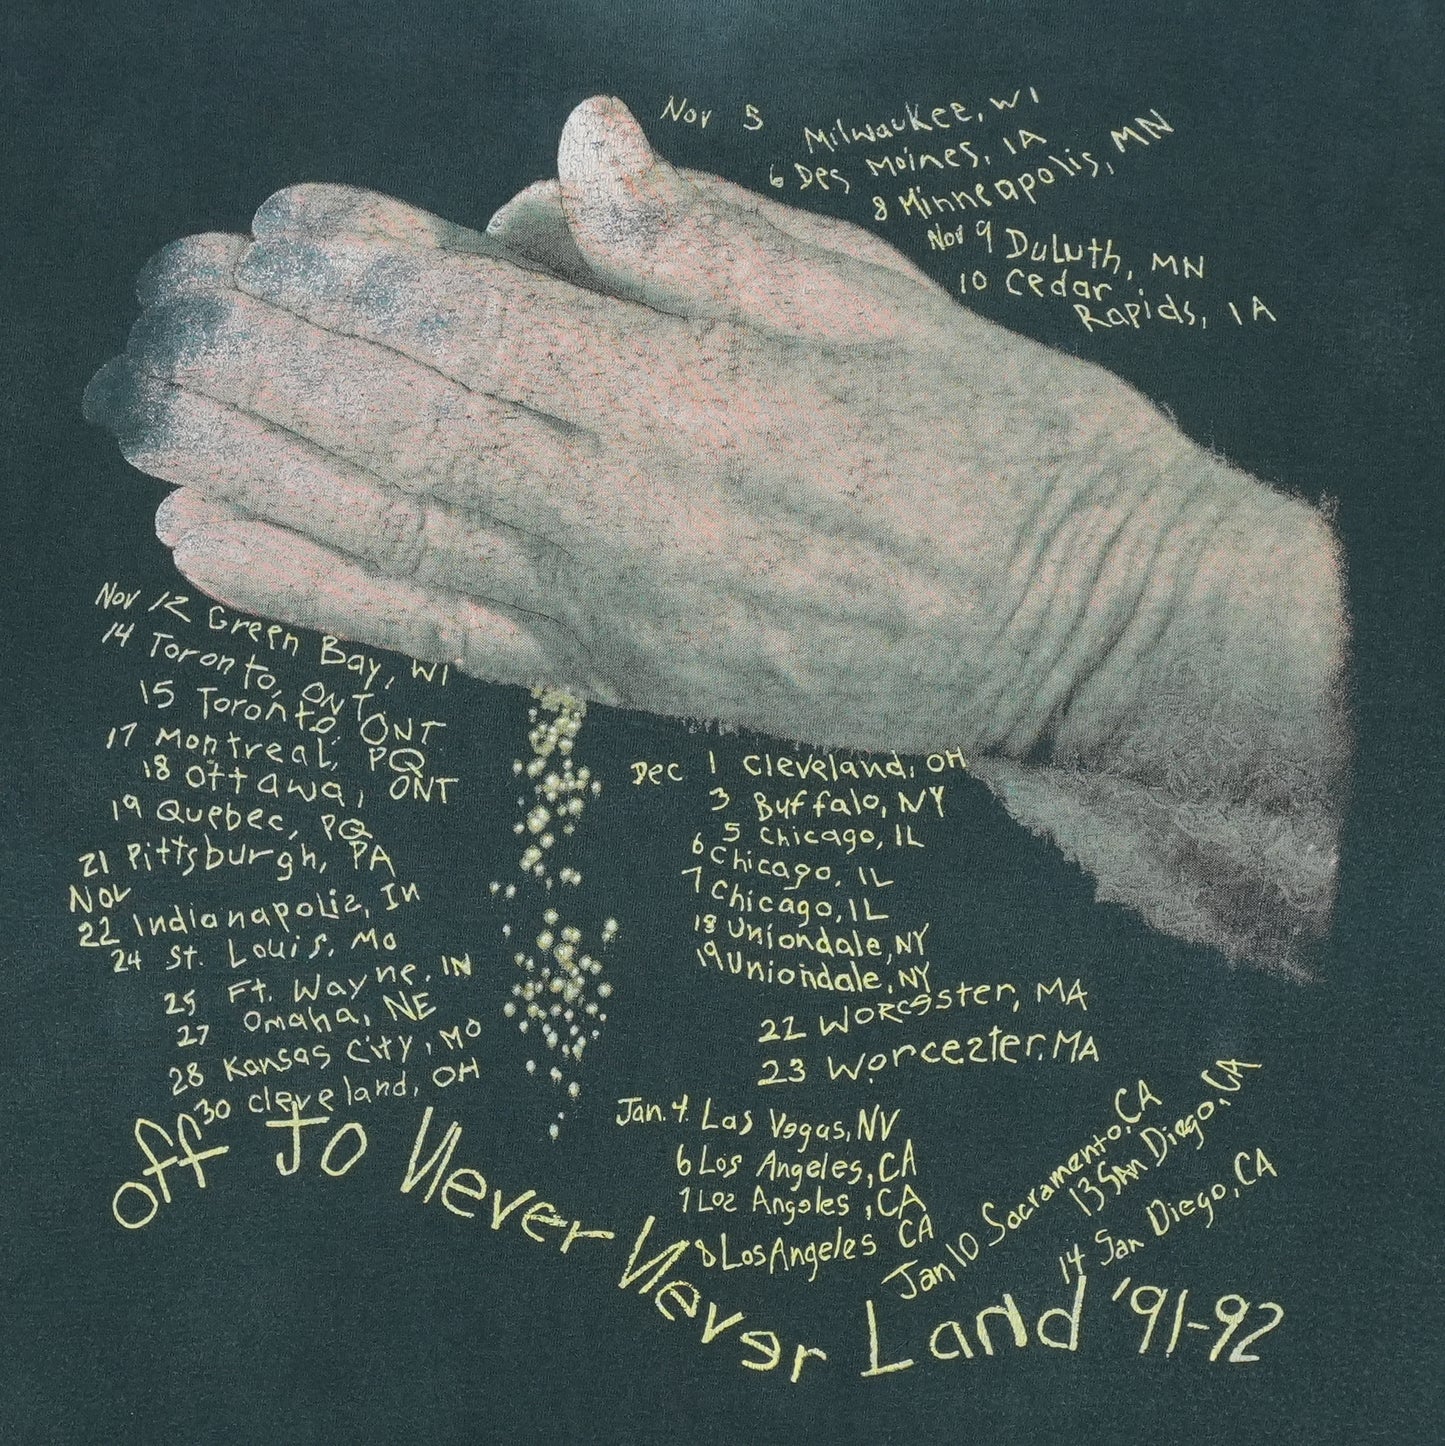 Nov 5 Milwaukee, WI
6 Des Moines, IA
8 Minneapolis, MN
Nov 9 Duluth, MN
10 Cedar
Rapids, IA
Nov 12 Green Bay, WI
14 Toronto, ONT
15 Toronto, ONT
17 Montreal, PQ
18 Ottawa, ONT
19 Quebec, PQ
21 Pittsburgh, PA
Nov
22 Indianapolis, In
24 St. Louis, Mo
25 Ft. Wayne, IN
27 Omaha, NE
28 Kansas City, MO
30 cleveland, OH
Dec 1 cleveland, OH
3 Buffalo, NY
5 Chicago, IL
6 Chicago, IL
7 Chicago, IL
18 Uniondale, NY
19 Uniondale, NY
22 Worcester, MA
23 Worcester, MA
Jan. 4. Las Vegas, NV
6 Los Angeles, CA
7 Los Angeles, CA
8 Los Angeles CA
Jan 10 Sacramento, CA
13 SAn Diego, CA
14 San Diego, CA
off to Never Never Land '91-92